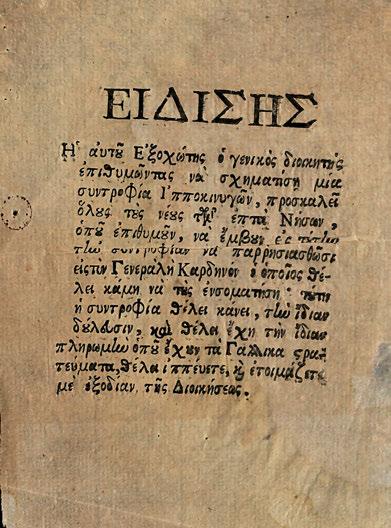 ΕΙΔΙΣΗΣ
Η' αὐτοῦ Εξοχώτης ὁ γενικὸς διοικητὴς
ἐπιθυμῶντας νὰ σχηματίσῃ μία
συντροφία Ιπποκινυγῶν, προσκαλεῖ
ὅλους τοὺς νέους τῶν ἑπτὰ Νήσων,
ὁποῦ ἐπιθυμοῦν, νὰ ἔμβουν εἰς τούτην
τὴν συντροφίαν νὰ παρρησιασθῶσι
εἰς τὸν Γενεράλη Καρδηνον ὁ ὁποῖος θέ-
λει κάμη νὰ τοὺς ἐνσοματήσῃ· τούτη
ἡ συντροφία θέλει κάνει, τὴν ἴδιαν
δούλευσιν, καὶ θέλει ἔχῃ τὴν ἴδιαν
πληρωμὴν ὁποῦ ἔχουν τὰ Γαλλικα στρα-
τεύματα, θέλει ἱππέυετε, καὶ ἑτοιμάζετε
μὲ ἐξοδίαν τῆς Διοικήσεως.